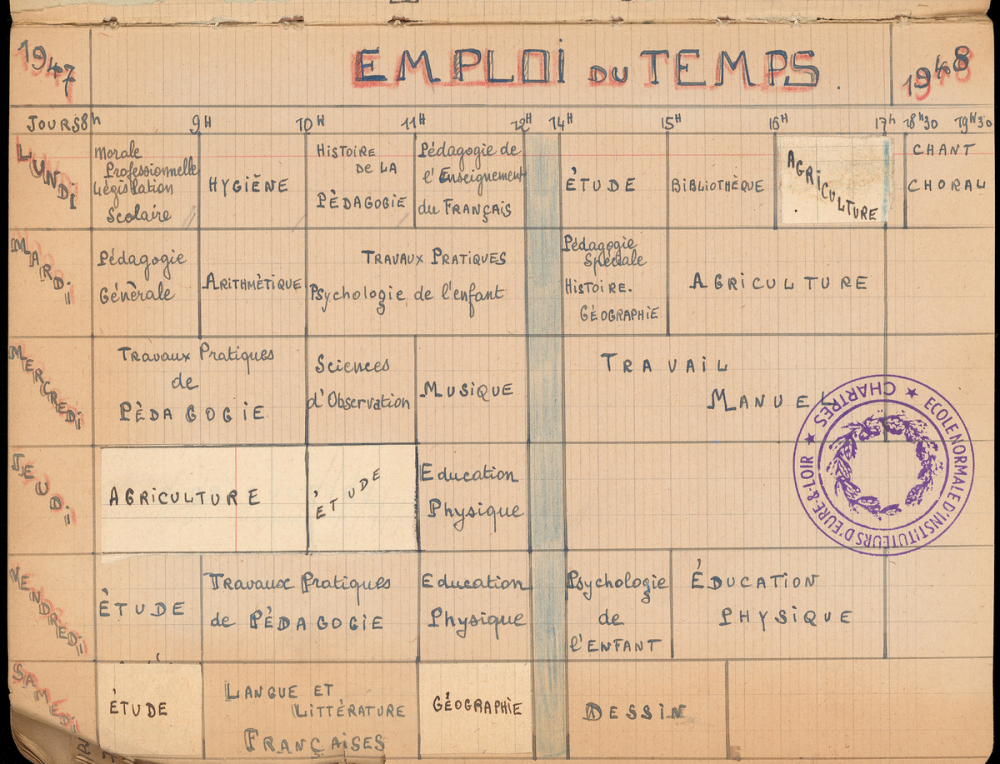 1947
EMPLOI DU TEMPS
1948
JOURS 8h 9H 10H 11H 12H 14H 15H 16H 17h 18h30 19H30
LUNDI
Morale
Professionnelle
Législation
Scolaire
HYGIÈNE
HISTOIRE
DE LA
PÈDAGOGIE
Pédagogie de
l'Enseignement
du FRANÇAIS
ÉTUDE
BIBLIOTHÈQUE
AGRICULTURE
CHANT
CHORAL
MARDI
Pédagogie
Générale
ARITHMÉTIQUE
TRAVAUX PRATIQUES
Psychologie de l'enfant
Pédagogie
Spéciale
HISTOIRE.
GÉOGRAPHIE
AGRICULTURE
MERCREDI
Travaux Pratiques
de
PÈDAGOGIE
Sciences
d'Observation
MUSIQUE
TRAVAIL
MANUEL
JEUDI
AGRICULTURE
ÉTUDE
Education
Physique
ECOLE NORMALE D'INSTITUTEURS D'EURE-&-LOIR ★ CHARTRES ★
VENDREDI
ÉTUDE
Travaux Pratiques
de PÉDAGOGIE
Education
Physique
Psychologie
de
l'ENFANT
ÉDUCATION
PHYSIQUE
SAMEDI
ÉTUDE
LANGUE ET
LITTÉRATURE
FRANÇAISES
GÉOGRAPHIE
DESSIN